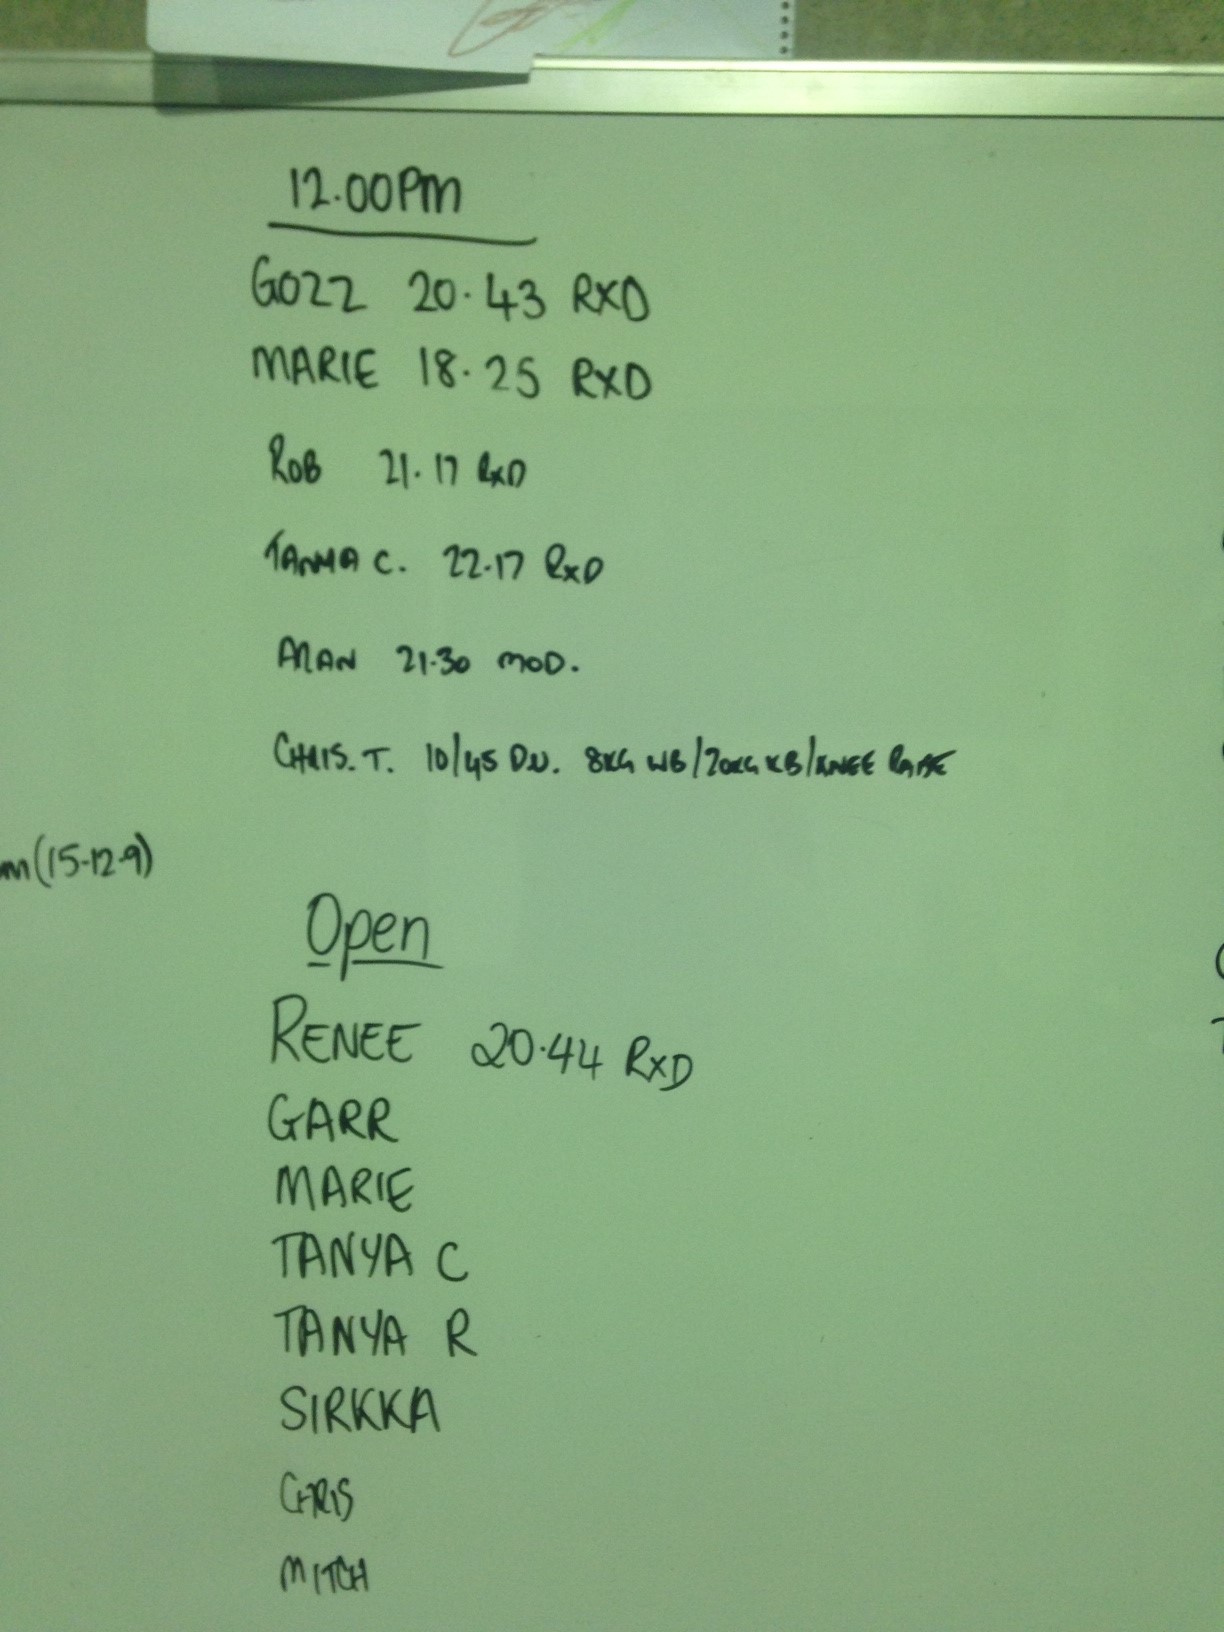 12.00PM
GOZZ 20.43 RXD
MARIE 18.25 RXD
ROB 21.17 RXD
TANYA C. 22.17 RXD
ALAN 21.30 MOD.
CHRIS. T. 10/45 DU. 8KG WB/20KG KB/KNEE RAISE
m (15-12-9)
Open
RENEE 20.44 RXD
GARR
MARIE
TANYA C
TANYA R
SIRKKA
CHRIS
MITCH